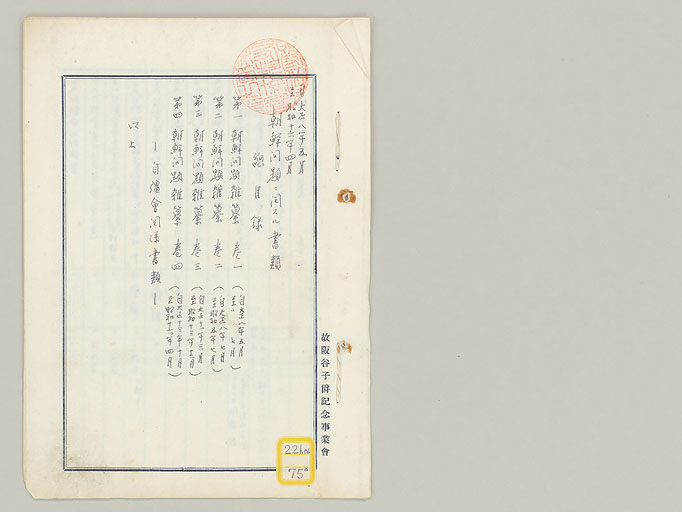 自大正八年五月
至昭和十六年四月
朝鮮问題ニ関スル書類
総目録
第一 朝鮮问題雑纂 巻一 (自大正八年五月 至〃 七月)
第二 朝鮮问題雑纂 巻二 (自大正八年七月 至昭和五年七月)
第三 朝鮮问題雑纂 巻三 (自大正十一年三月 至昭和十六年十一月)
第四 朝鮮问題雑纂 巻四 (自大正十三年十月 至昭和十六年四月)
―自彊會関係書類―
以上
故阪谷子爵記念事業會
221.06
75